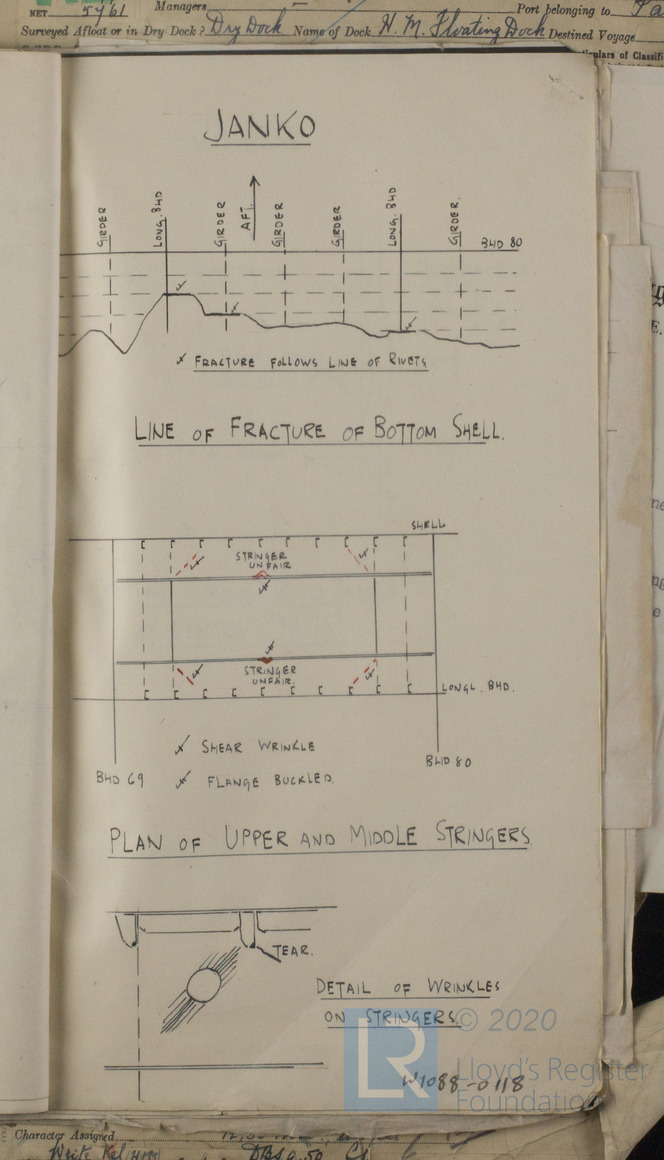 NET 5461 Managers Port belonging to
Surveyed Afloat or in Dry Dock? Dry Dock Name of Dock H. M. Floating Dock Destined Voyage
JANKO
GIRDER
LONG. BHD
GIRDER
AFT.
GIRDER
GIRDER
LONG. BHD
GIRDER.
BHD 80
FRACTURE FOLLOWS LINE OF RIVETS
LINE OF FRACTURE OF BOTTOM SHELL.
SHELL
STRINGER
UNFAIR
STRINGER
UNFAIR.
LONGL. BHD.
SHEAR WRINKLE
BHD 80
BHD 69
FLANGE BUCKLED.
PLAN OF UPPER AND MIDDLE STRINGERS
TEAR.
DETAIL OF WRINKLES
ON STRINGERS.
© 2020
LR
Lloyd's Register
Foundation
W1088-0118
Character Assigned